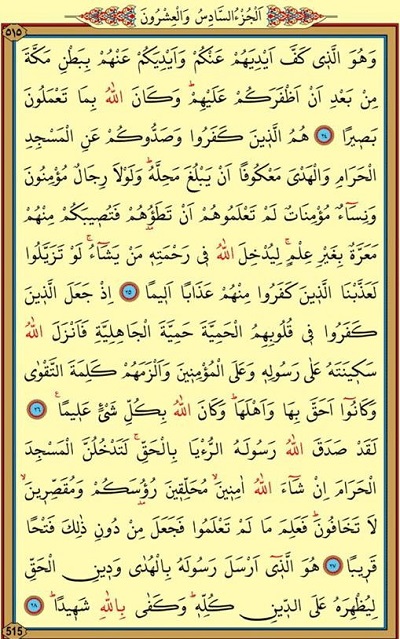 اَلْجُزْءُ السَّادِسُ وَالْعِشْرُونَ
٥١٥
وَهُوَ الَّذ۪ي كَفَّ اَيْدِيَهُمْ عَنْكُمْ وَاَيْدِيَكُمْ عَنْهُمْ بِبَطْنِ مَكَّةَ
مِنْ بَعْدِ اَنْ اَظْفَرَكُمْ عَلَيْهِمْۜ وَكَانَ اللّٰهُ بِمَا تَعْمَلُونَ
بَص۪يرًا ﴿٢٤﴾ هُمُ الَّذ۪ينَ كَفَرُوا وَصَدُّوكُمْ عَنِ الْمَسْجِدِ
الْحَرَامِ وَالْهَدْيَ مَعْكُوفًا اَنْ يَبْلُغَ مَحِلَّهُۜ وَلَوْلَا رِجَالٌ مُؤْمِنُونَ
وَنِسَٓاءٌ مُؤْمِنَاتٌ لَمْ تَعْلَمُوهُمْ اَنْ تَطَؤُ۫هُمْ فَتُص۪يبَكُمْ مِنْهُمْ
مَعَرَّةٌ بِغَيْرِ عِلْمٍۚ لِيُدْخِلَ اللّٰهُ ف۪ي رَحْمَتِه۪ مَنْ يَشَٓاءُۚ لَوْ تَزَيَّلُوا
لَعَذَّبْنَا الَّذ۪ينَ كَفَرُوا مِنْهُمْ عَذَابًا اَل۪يمًا ﴿٢٥﴾ اِذْ جَعَلَ الَّذ۪ينَ
كَفَرُوا ف۪ي قُلُوبِهِمُ الْحَمِيَّةَ حَمِيَّةَ الْجَاهِلِيَّةِ فَاَنْزَلَ اللّٰهُ
سَك۪ينَتَهُ عَلٰى رَسُولِه۪ وَعَلَى الْمُؤْمِن۪ينَ وَاَلْزَمَهُمْ كَلِمَةَ التَّقْوٰى
وَكَانُٓوا اَحَقَّ بِهَا وَاَهْلَهَاۜ وَكَانَ اللّٰهُ بِكُلِّ شَيْءٍ عَل۪يمًا۟ ﴿٢٦﴾
لَقَدْ صَدَقَ اللّٰهُ رَسُولَهُ الرُّءْيَا بِالْحَقِّۚ لَتَدْخُلُنَّ الْمَسْجِدَ
الْحَرَامَ اِنْ شَٓاءَ اللّٰهُ اٰمِن۪ينَۙ مُحَلِّق۪ينَ رُؤُ۫سَكُمْ وَمُقَصِّر۪ينَۙ
لَا تَخَافُونَۜ فَعَلِمَ مَا لَمْ تَعْلَمُوا فَجَعَلَ مِنْ دُونِ ذٰلِكَ فَتْحًا
قَر۪يبًا ﴿٢٧﴾ هُوَ الَّذ۪ٓي اَرْسَلَ رَسُولَهُ بِالْهُدٰى وَد۪ينِ الْحَقِّ
لِيُظْهِرَهُ عَلَى الدّ۪ينِ كُلِّه۪ۜ وَكَفٰى بِاللّٰهِ شَه۪يدًاۜ ﴿٢٨﴾
515